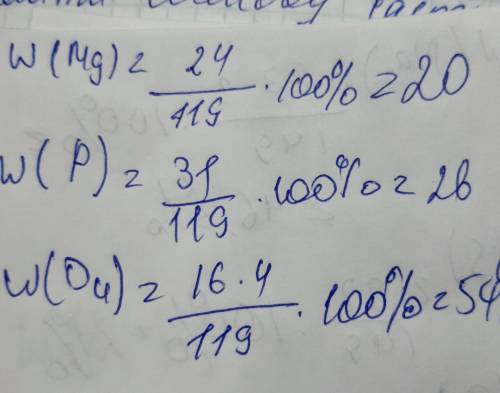 W(Mg) = 24/119 · 100% = 20
W(P) = 31/119 · 100% = 26
W(O4) = 16·4/119 · 100% = 54